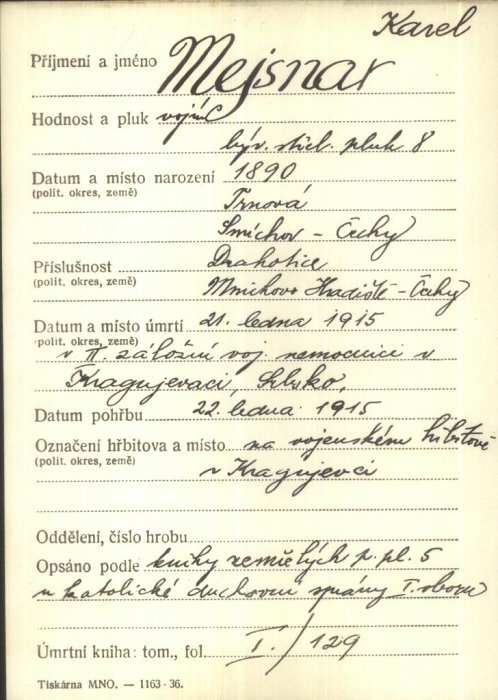 Karel
Příjmení a jméno Mejsnar
Hodnost a pluk vojín
býv. střel. pluk 8
Datum a místo narození 1890
(polit. okres, země)
Trnová
Smíchov - Čechy
Příslušnost Drahotice
(polit. okres, země)
Mnichovo Hradiště - Čechy
Datum a místo úmrtí 21. ledna 1915
(polit. okres, země)
v II. záložní voj. nemocnici v
Kragujevaci, Srbsko.
Datum pohřbu 22. ledna 1915
Označení hřbitova a místo na vojenském hřbitově
(polit. okres, země)
v Kragujevci
Oddělení, číslo hrobu
Opsáno podle knihy zemřelých p. pl. 5
u katolické duchovní správy I. sboru
Úmrtní kniha: tom., fol. I. / 129
Tiskárna MNO. — 1163-36.